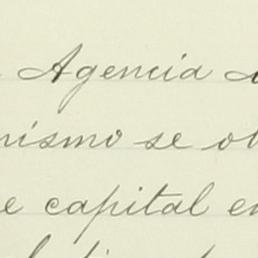 Agencia
nismo se ob
e capital en